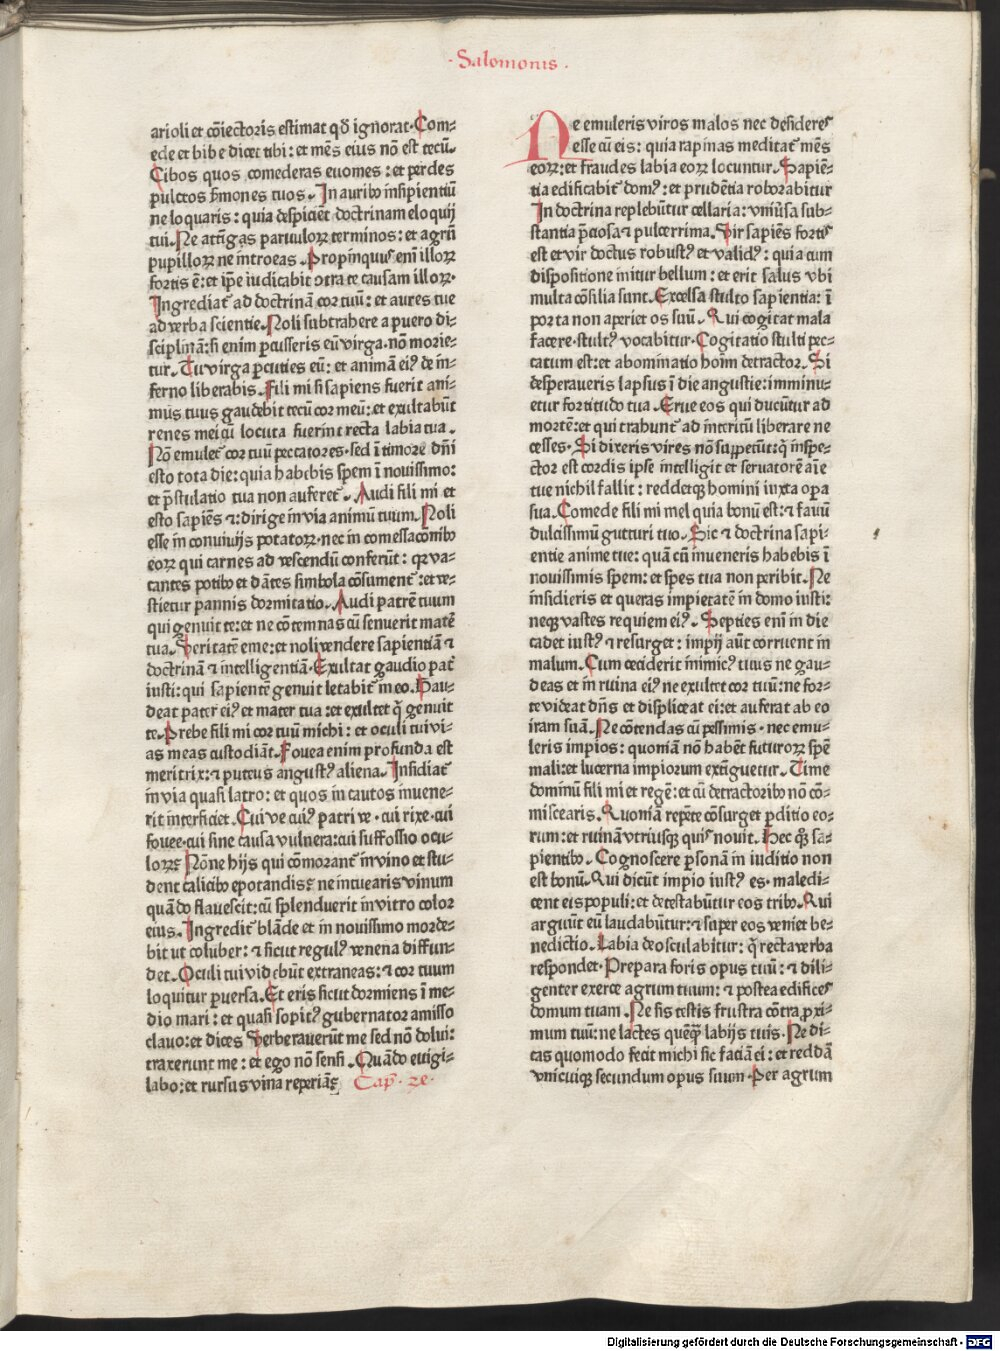 · Salomonis ·
arioli et cōiectoris estimat qd̄ ignorat. Com⸗
ede et bibe dicet tibi: et mēs eius nō est tecū.
Cibos quos comederas euomes: et perdes
pulcros s̄mones tuos. In auribꝰ insipientiū
ne loquaris: quia despiciēt doctrinam eloquij
tui. Ne attīgas paruuloꝝ terminos: et agrū
pupilloꝝ ne introeas. Propinquus enī illoꝝ
fortis ē: et ip̄e iudicabit ↄtra te causam illoꝝ.
Ingrediat᷑ ad doctrinā cor tuū: et aures tue
ad verba scientie. Noli subtrahere a puero di⸗
sciplinā: si enim ꝑcusseris eū virga. nō morie⸗
tur. Tu virga ꝑcuties eū: et animā eiꝰ de in⸗
ferno liberabis. Fili mi si sapiens fuerit ani⸗
mus tuus gaudebit tecū cor meū: et exultabūt
renes mei qū locuta fuerint recta labia tua.
Nō emulet᷑ cor tuū peccatores. sed ī timore dn̄i
esto tota die: quia habebis spem ī nouissimo:
et p̄stulatio tua non auferet᷑. Audi fili mi et
esto sapiēs ⁊: dirige in via animū tuum. Noli
esse in conuiuijs potatoꝝ. nec in comessacōnibꝰ
eoꝝ qui carnes ad vescendū conferūt: qꝛ va⸗
cantes potibꝰ et dātes simbola cōsument᷑: et ve⸗
stietur pannis dormitatio. Audi patrē tuum
qui genuit te: et ne cōtemnas cū senuerit matē
tua. Veritatē eme: et noli vendere sapientiā ⁊
doctrinā ⁊ intelligentiā. Exultat gaudio pat᷑
iusti: qui sapientē genuit letabit᷑ in eo. Gau⸗
deat pater eiꝰ et mater tua: et exultet q̄ genuit
te. Prebe fili mi cor tuū michi: et oculi tui vi⸗
as meas custodiāt. Fouea enim profunda est
meritrix: ⁊ puteus angustꝰ aliena. Insidiat᷑
in via quasi latro: et quos in cautos inuene⸗
rit interficiet. Cui ve cuiꝰ patri ve. cui rixe. cui
fouee. cui sine causa vulnera: cui suffossio ocu⸗
loꝝ? Nōne hijs qui cōmorant᷑ in vino et stu⸗
dent calicibꝰ epotandis? ne intuearis vinum
quādo flauescit: cū splenduerit in vitro color
eius. Ingredit᷑ blāde et in nouissimo morde⸗
bit ut coluber: ⁊ sicut regulꝰ venena diffun⸗
det. Oculi tui videbūt extraneas: ⁊ cor tuum
loquitur ꝑuersa. Et eris sicut dormiens ī me⸗
dio mari: et quasi sopitꝰ gubernator amisso
clauo: et dices Verberauerūt me sed nō dolui:
traxerunt me: et ego nō sensi. Quādo euigi⸗
labo: et rursus vina reperiā? Cap̄. 24.
Ne emuleris viros malos nec desideres
esse cū eis: quia rapinas meditat᷑ mēs
eoꝝ: et fraudes labia eoꝝ locuntur. Sapiē⸗
tia edificabit᷑ domꝰ: et prudētia roborabitur
In doctrina replebūtur cellaria: vniūsa sub⸗
stantia p̄ciosa ⁊ pulcerrima. Vir sapiēs fortis
est et vir doctus robustꝰ et validꝰ: quia cum
dispositione initur bellum: et erit salus vbi
multa cōsilia sunt. Excelsa stulto sapientia: ī
porta non aperiet os suū. Qui cogitat mala
facere. stultꝰ vocabitur. Cogitatio stulti pec⸗
catum est: et abominatio hoīm detractor. Si
desperaueris lapsus ī die angustie: imminu⸗
etur fortitudo tua. Erue eos qui ducūtur ad
mortē: et qui trahunt᷑ ad īnteritū liberare ne
cesses. Si dixeris vires nō suppetūt: q̄ inspe⸗
ctor est cordis ipse intelligit et seruatorē aīe
tue nichil fallit: reddetqꝫ homini iuxta oꝑa
sua. Comede fili mi mel quia bonū est: ⁊ fauū
dulcissimū gutturi tuo. Sic ⁊ doctrina sapi⸗
entie anime tue: quā cū inueneris habebis ī
nouissimis spem: et spes tua non peribit. Ne
insidieris et queras impietatē in domo iusti:
neqꝫ vastes requiem eiꝰ. Septies enī in die
cadet iustꝰ ⁊ resurget: impij aūt corruent in
malum. Cum ceciderit inimicꝰ tuus ne gau⸗
deas et in ruina eiꝰ ne exultet cor tuū: ne for⸗
te videat dn̄s et displiceat ei: et auferat ab eo
iram suā. Ne cōtendas cū pessimis. nec emu⸗
leris impios: quoniā nō habēt futuroꝝ spē
mali: et lucerna impiorum extīguetur. Time
dominū fili mi et regē: et cū detractoribꝰ nō cō⸗
miscearis. Quoniā repēte cōsurget ꝑditio eo⸗
rum: et ruinā vtriusqꝫ quis nouit. Hec qꝫ sa⸗
pientibꝰ. Cognoscere ꝑsonā in iuditio non
est bonū. Qui dicūt impio iustꝰ es. maledi⸗
cent eis populi: et detestabūtur eos tribꝰ. Qui
arguūt eū laudabūtur: ⁊ super eos veniet be⸗
nedictio. Labia deosculabitur: q̄ recta verba
respondet. Prepara foris opus tuū: ⁊ dili⸗
genter exerce agrum tuum: ⁊ postea edifices
domum tuam. Ne sis testis frustra cōtra ꝓxi⸗
mum tuū: ne lactes quēqꝫ labijs tuis. Ne di⸗
cas quomodo fecit michi sic faciā ei: et reddā
vnicuiqꝫ secundum opus suum. Per agrum
Digitalisierung gefördert durch die Deutsche Forschungsgemeinschaft - DFG